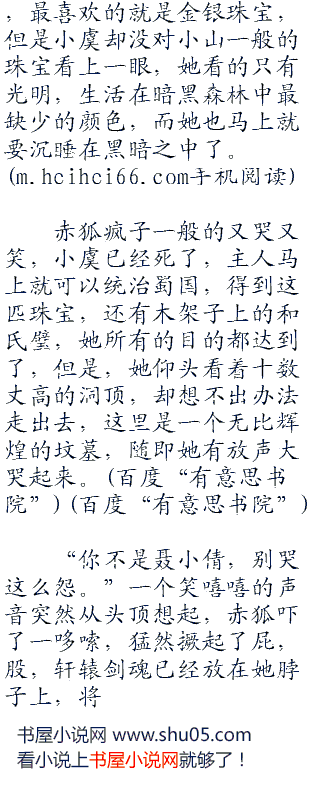 ，最喜欢的就是金银珠宝，
但是小虞却没对小山一般的
珠宝看上一眼，她看的只有
光明，生活在暗黑森林中最
缺少的颜色，而她也马上就
要沉睡在黑暗之中了。
(m.hcihci66.com手机阅读)
赤狐疯子一般的又哭又
笑，小虞已经死了，主人马
上就可以统治蜀国，得到这
匹珠宝，还有木架子上的和
氏璧，她所有的目的都达到
了，但是，她仰头看着十数
丈高的洞顶，却想不出办法
走出去，这里是一个无比辉
煌的坟墓，随即她有放声大
哭起来。(百度“有意思书
院”)(百度“有意思书院”)
“你不是聂小倩，别哭
这么怨。”一个笑嘻嘻的声
音突然从头顶想起，赤狐吓
了一哆嗦，猛然撅起了屁，
股，轩辕剑魂已经放在她脖
子上，将
书屋小说网 www.shu05.com
看小说上书屋小说网就够了！